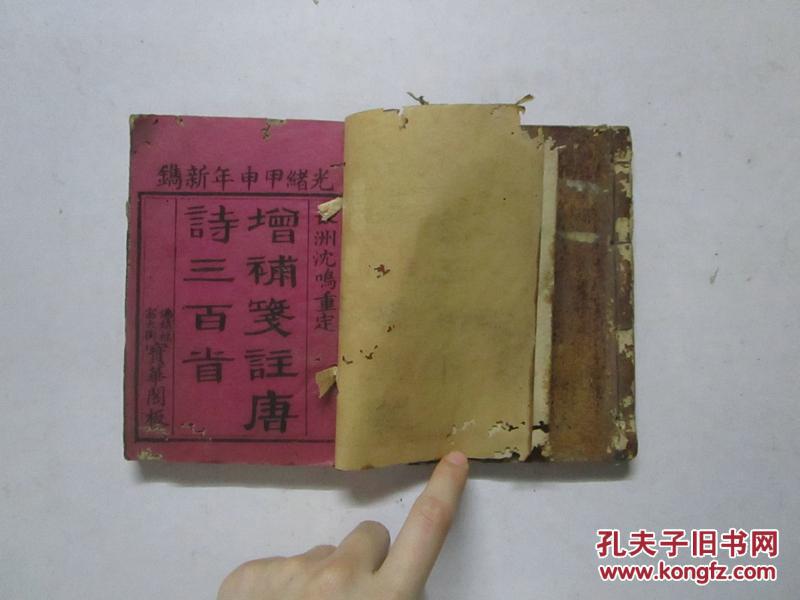 光緒甲申年新鐫
長洲沈鳴重定
增補箋註唐
詩三百首
寶華閣板
孔夫子旧书网
www.kongfz.com